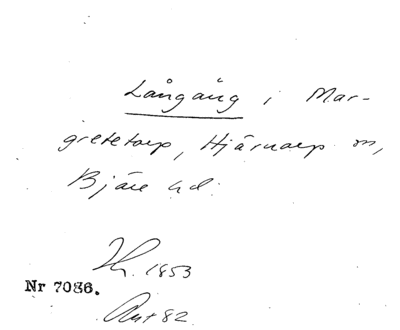 Långäng i Mar-
gretetorp, Hjärnarp sn,
Bjäre hd.
Th. 1853
Nr 7086.
Ant 82